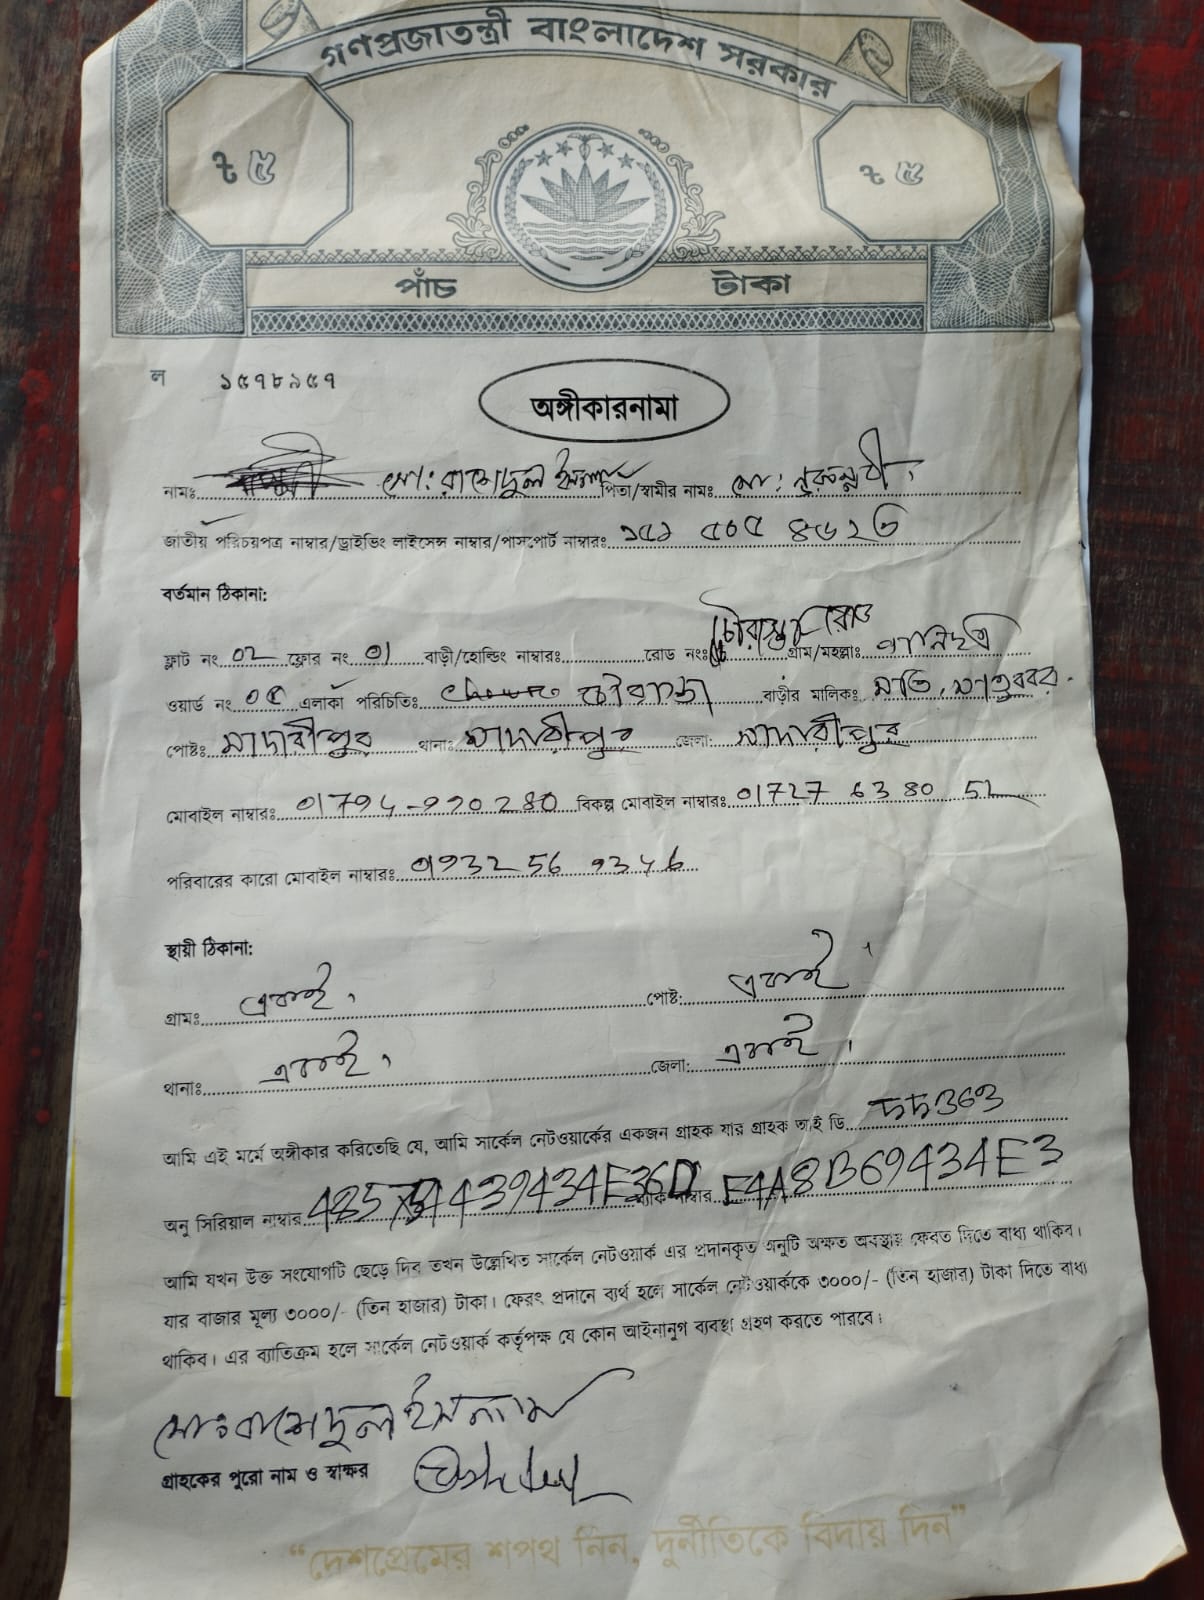 গণপ্রজাতন্ত্রী বাংলাদেশ সরকার
৳ ৫ ৳ ৫
পাঁচ টাকা
ল ১৫৭৮৯৫৭
অঙ্গীকারনামা
নামঃ মো: রাশেদুল ইসলাম পিতা/স্বামীর নাম: মো: নুরুন্নবী
জাতীয় পরিচয়পত্র নাম্বার/ড্রাইভিং লাইসেন্স নাম্বার/পাসপোর্ট নাম্বারঃ
বর্তমান ঠিকানা:
ফ্লাট নং 02 ফ্লোর নং 01 বাড়ী/হোল্ডিং নাম্বারঃ রোড নংঃ চৌরাস্তা রোড গ্রাম/মহল্লাঃ
ওয়ার্ড নং 05 এলাকা পরিচিতিঃ বাড়ীর মালিকঃ মতি, মাতুব্বর.
পোষ্টঃ মাদারীপুর থানাঃ মাদারীপুর জেলা: মাদারীপুর
মোবাইল নাম্বারঃ 01794-920280 বিকল্প মোবাইল নাম্বারঃ 01727 63 80 52
পরিবারের কারো মোবাইল নাম্বারঃ
স্থায়ী ঠিকানা:
গ্রামঃ একাই, পোষ্ট: একাই।
থানাঃ একাই, জেলা: একাই।
আমি এই মর্মে অঙ্গীকার করিতেছি যে, আমি সার্কেল নেটওয়ার্কের একজন গ্রাহক যার গ্রাহক আই ডি
অনু সিরিয়াল নাম্বার ম্যাক নাম্বার E4A8B69434E3
আমি যখন উক্ত সংযোগটি ছেড়ে দিব তখন উল্লেখিত সার্কেল নেটওয়ার্ক এর প্রদানকৃত অনুটি অক্ষত অবস্থায় ফেরত দিতে বাধ্য থাকিব।
যার বাজার মূল্য ৩০০০/- (তিন হাজার) টাকা। ফেরৎ প্রদানে ব্যর্থ হলে সার্কেল নেটওয়ার্ককে ৩০০০/- (তিন হাজার) টাকা দিতে বাধ্য
থাকিব। এর ব্যাতিক্রম হলে সার্কেল নেটওয়ার্ক কর্তৃপক্ষ যে কোন আইনানুগ ব্যবস্থা গ্রহণ করতে পারবে।
মোঃ রাশেদুল ইসলাম
গ্রাহকের পুরো নাম ও স্বাক্ষর
“দেশপ্রেমের শপথ নিন, দুর্নীতিকে বিদায় দিন”